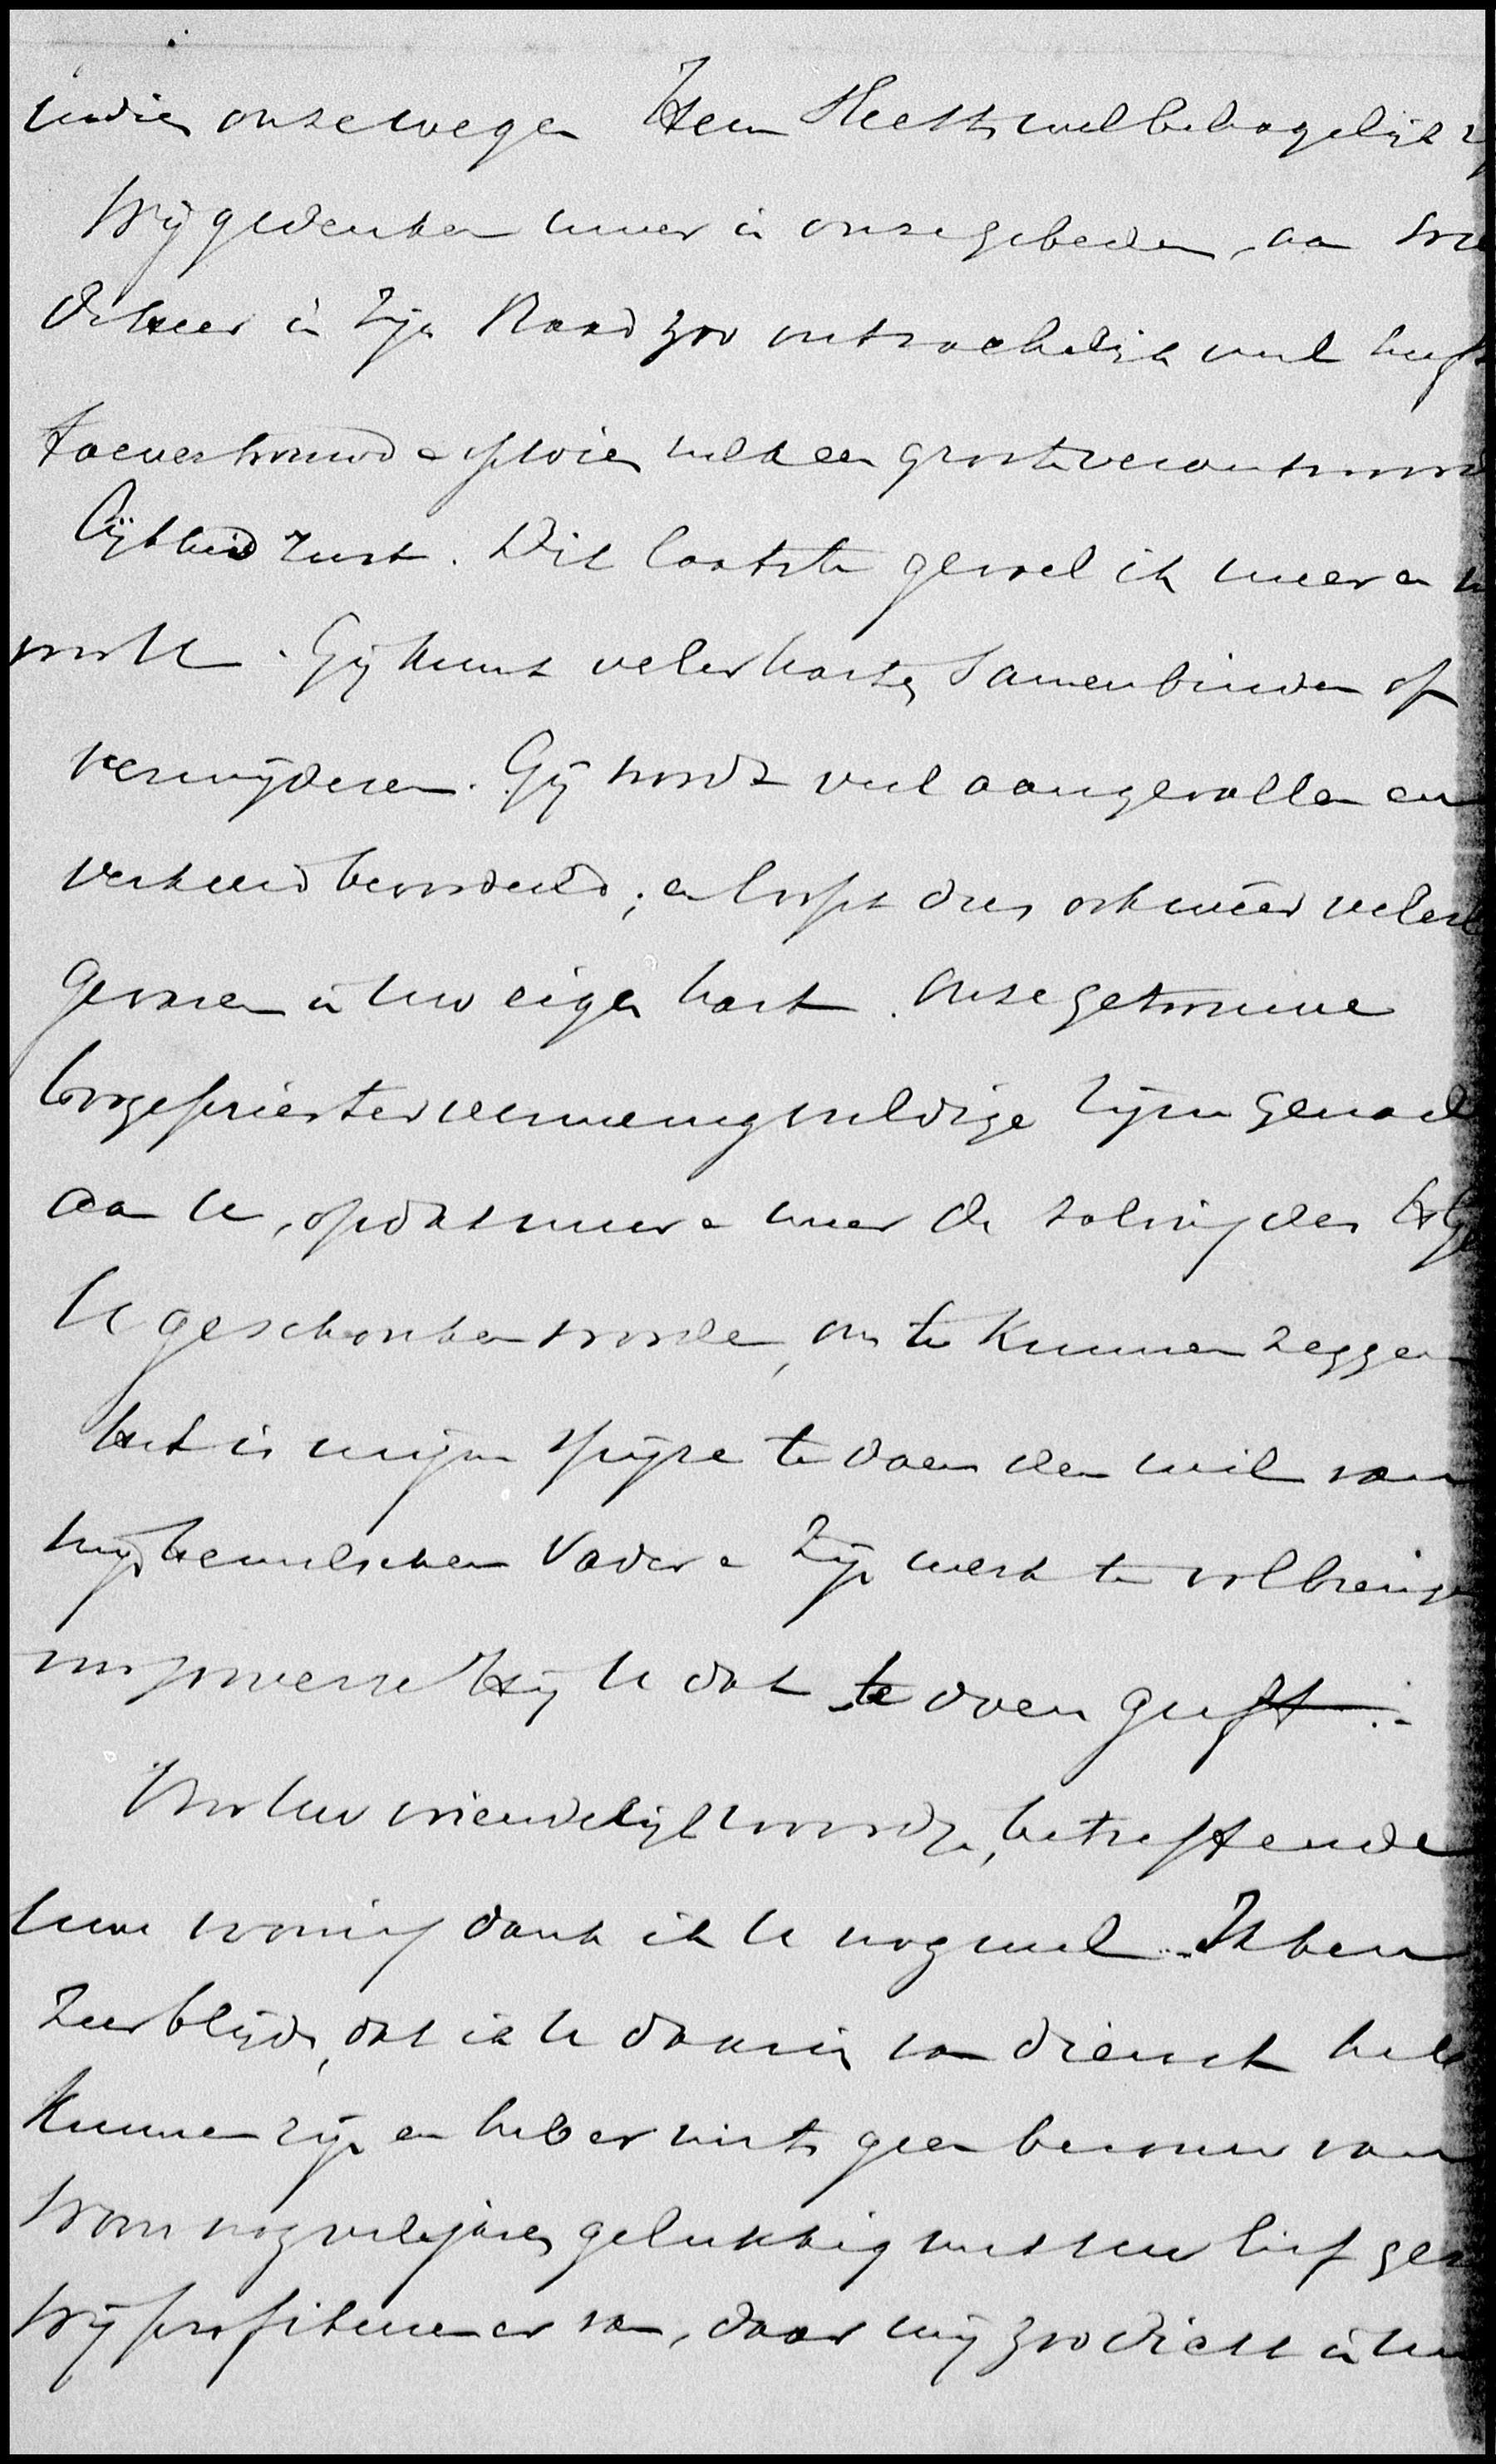 indien onze wegen Hem slechts welbehagelijk
Wij gedenken uwer in onze gebeden, aan wie
de Heer in Zijn Raad zoo ontzachelijk veel heeft
toevertrouwd en op wien zulk een groote verantwoorde
lijkheid rust. Dit laatste gevoel ik meer en
voor U. Gij kunt veler harten samenbinden of
verwijderen. Gij wordt veel aangevallen en
verkeerd beoordeeld; en loopt dus ook weêr veler
gevaren in Uw eigen hart. Onze getrouwe
Hoogepriester vermenigvuldige Zijne genade
aan U, opdat meer en meer de zalving des
U geschonken worde, om te kunnen zeggen
het is mijne spijze te doen den wil van
mijn hemelschen Vader en Zijn werk te volbrengen
Hij U dat te doen geeft.
Voor Uw vriendelijke woorden, betreffende
Uwe woning dank ik U nog wel. Ik ben
zeer blijde, dat ik U daarin van dienst heb
kunnen zijn en heb er niets geen berouw van
Woon nog vele jaren gelukkig met uw lief
Wij profiteeren er van, daar wij zoo dicht in Uw